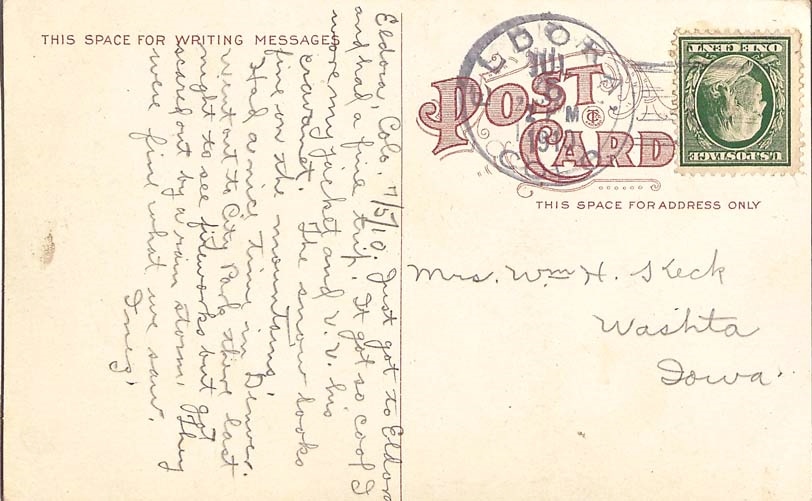 THIS SPACE FOR WRITING MESSAGES
Eldora, Colo. 7/5/10. Just got to Eldora
and had a fine trip. It got so cool I
wore my jacket and V.V. his
cravanet. The snow looks
fine on the mountains.
Had a nice time in Denver.
Went out to City Park there last
night to see fireworks but got
scared out by a rain storm. They
were fine what we saw.
Inez.
ELDORA
JUL
5
2 P M
1910
COLO
POST
CARD
U.S. POSTAGE
ONE CENT
THIS SPACE FOR ADDRESS ONLY
Mrs. Wm H. Keck
Washta
Iowa.